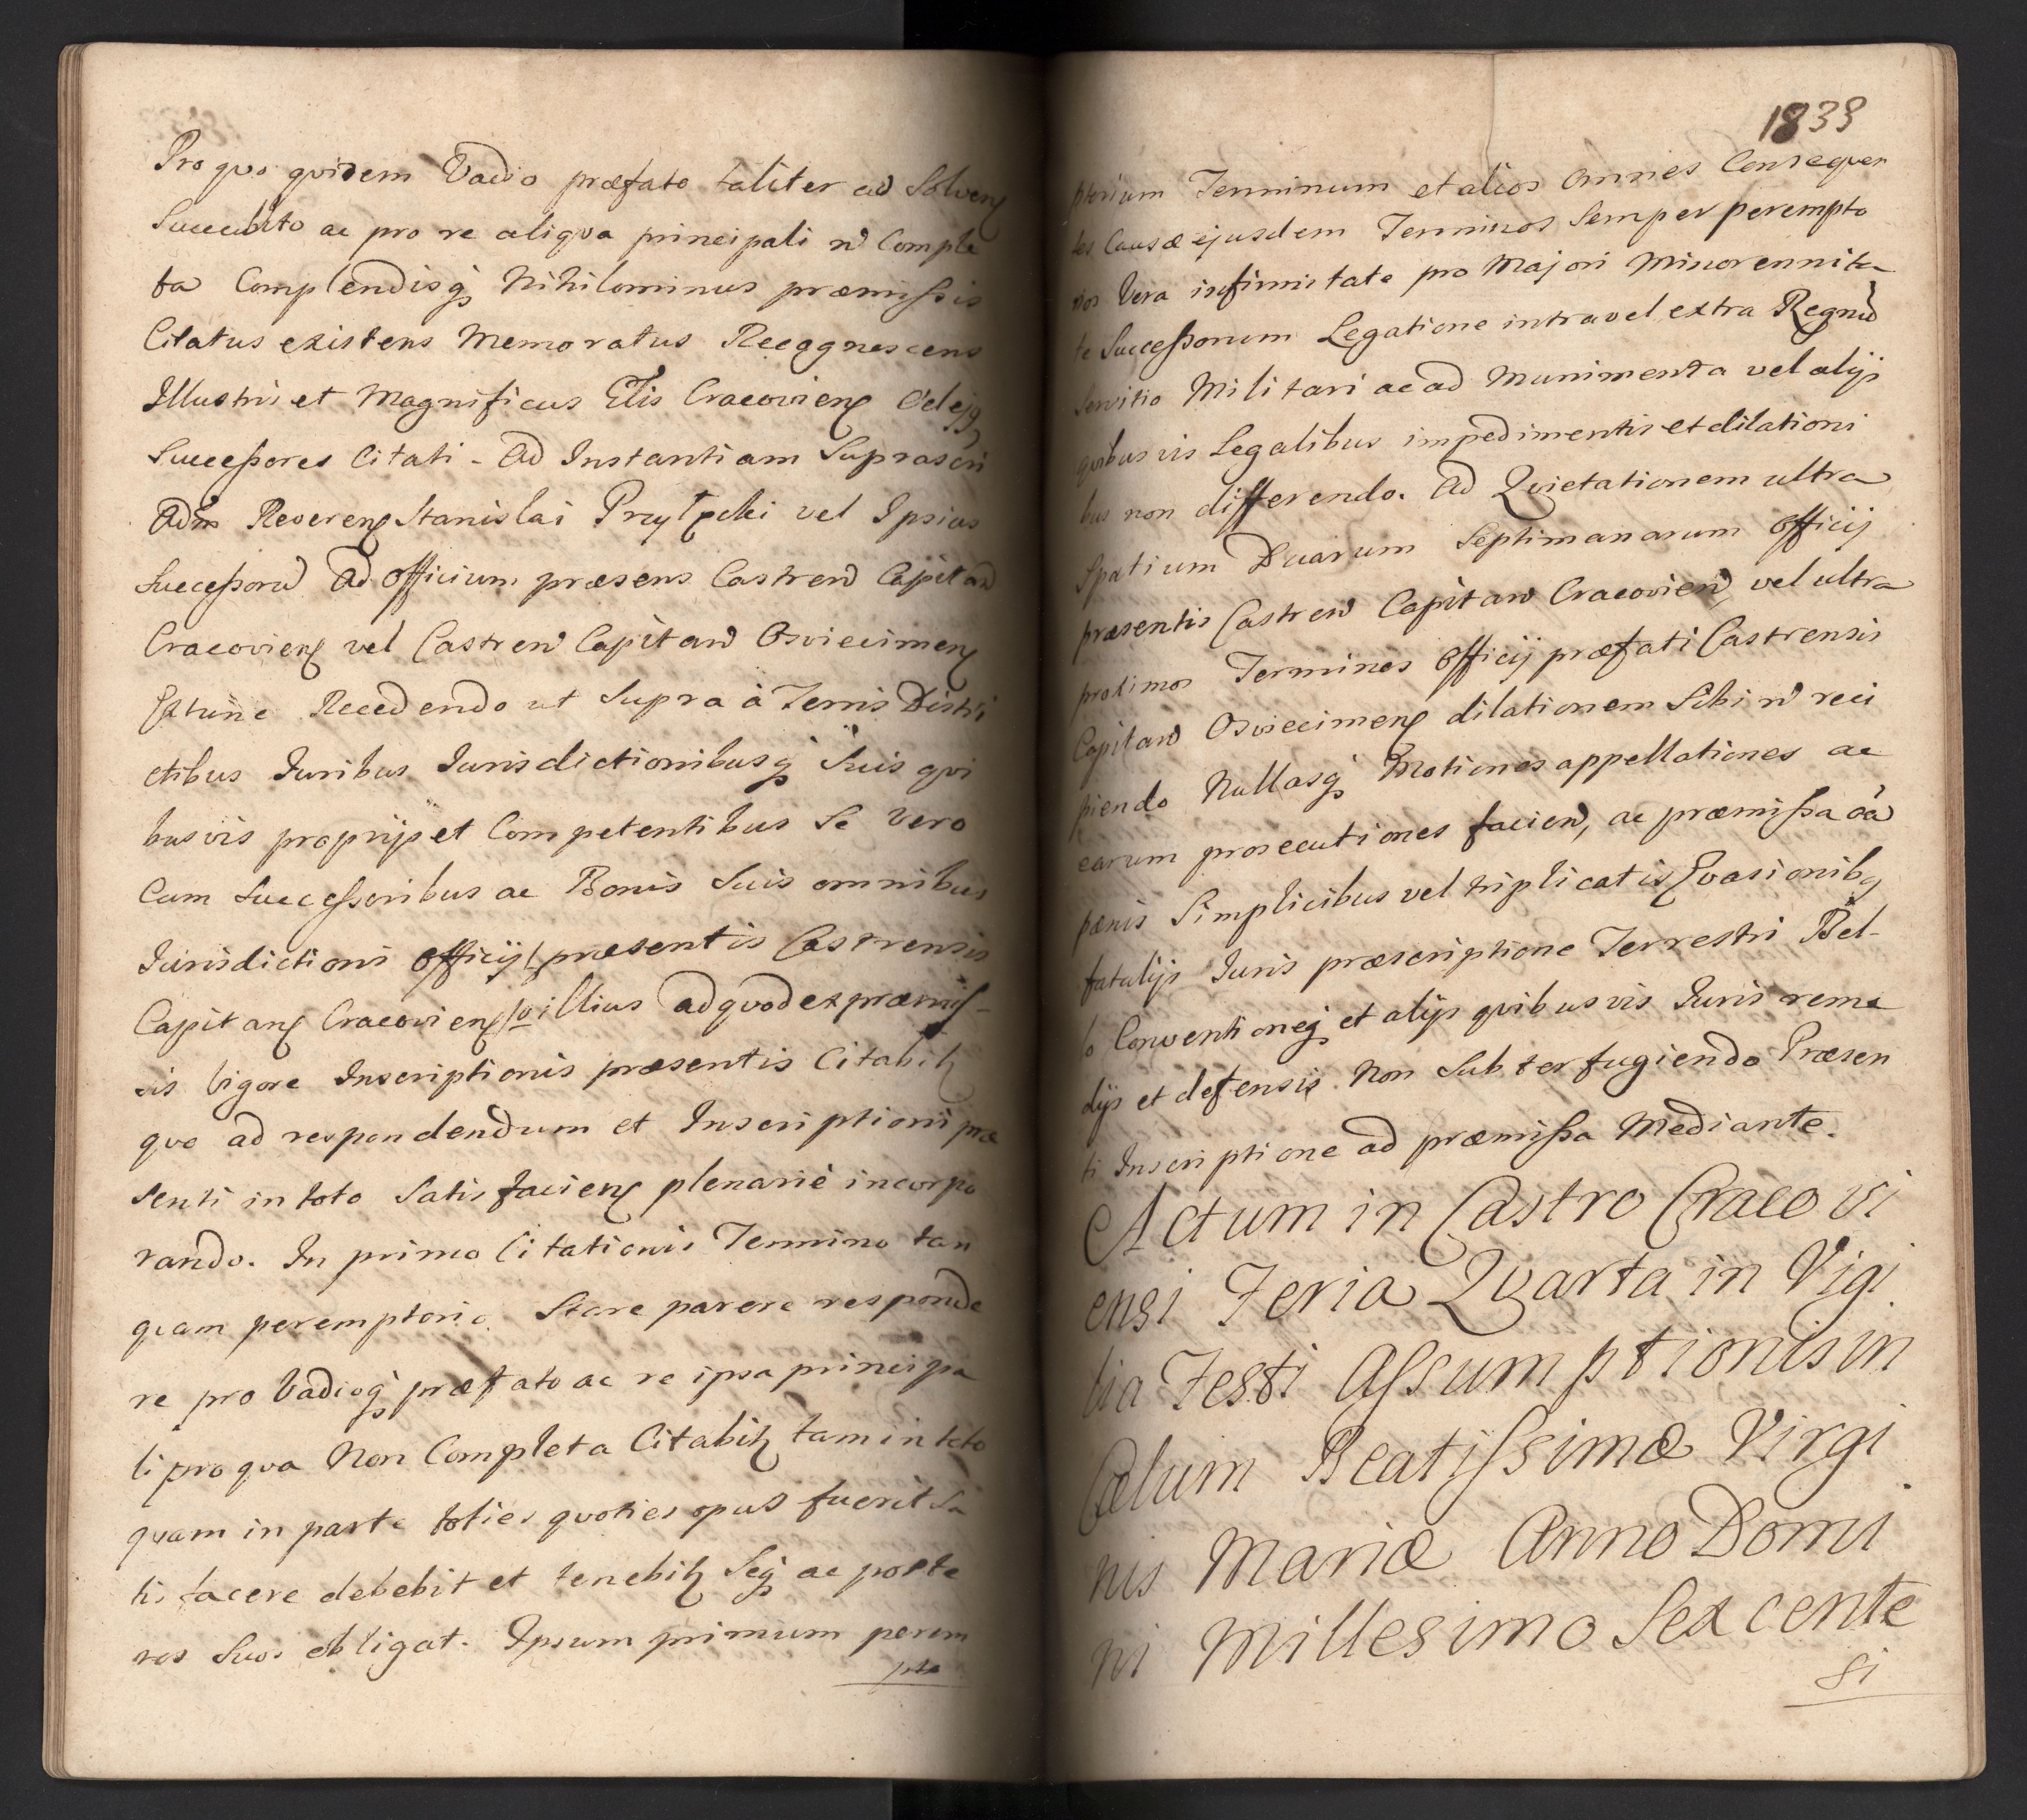 Pro quo quidem Vadio præfato taliter ad Solven
Succubito ac pro re aliqva principali n Comple
ta Complendisq Nihilominus præmissis
Citatus existens Memoratus Recognescens
Illustris et Magnificus Ctis Cracovien
Successores Citati - Ad Instantiam Suprascri
Adm Reveren Stanislai vel Ipsius
Successorũ Ad officium præsens Castren Capitan
Cracovien vel Castren Capitan Osviecimen
Extunc Recedendo ut Supra à Terris Distri
ctibus Juribus Jurisdictionibusq Suis qvi
busvis proprijs et Competentibus Se vero
Cum Successoribus ac Bonis Suis omnibus
Jurisdictioni officij præsentis Castrensis
Capitan Cracovien illius ad qvod ex præmis-
sis Vigore Inscriptionis præsentis Citabit
qvo ad respondendum et Inscriptioni præ
senti in toto Satisfacien plenariè incorpo
rando. In primo Citationis Termino tan
qvam peremptorio. Stare parere responde
re pro Vadioq præfato ac re ipsa principa
li pro qva Non Completa Citabit tam in toto
qvam in parte toties qvoties opus fuerit Sa
tis facere debebit et tenebit Seq ac poste
ros Suos obligat. Ipsum primum perem
pto
1833
ptorium Terminum et alios Omnes Conseqven
tes Causæ ejusdem Terminos Semper perempto
rios Vera infirmitate pro Majori Minorennita
te Successorum Legatione intra vel extra Regnũ
Servitio Militari ac ad Munimenta vel alijs
qvibusvis Legalibus impedimentis et dilationi
bus non differendo. Ad Qvietationem ultra
Spatium Duarum Septimanarum officij
præsentis Castren Capitan Cracovien, vel ultra
protimos Terminos officij præfati Castrensis
Capitan Osviecimen dilationem Sibi n reci
piendo Nullasq Motiones appellationes ac
earum prosecutiones facien, ac præmissa oã
pænis Simplicibus vel triplicatis Evasionibq
fatalijs Juris præscriptione Terrestri Bel-
lo Conventioneq et alijs qvibusvis Juris reme
dijs et defensis. Non Subterfugiendo Præsen
ti Inscriptione ad præmissa Mediante.
Actum in Castro Cracovi
ensi Feria Qvarta in Vigi
lia Festi Assumptionis in
Cælum Beatissimæ Virgi
nis Mariæ Anno Domi
ni Millesimo Sexcente
si